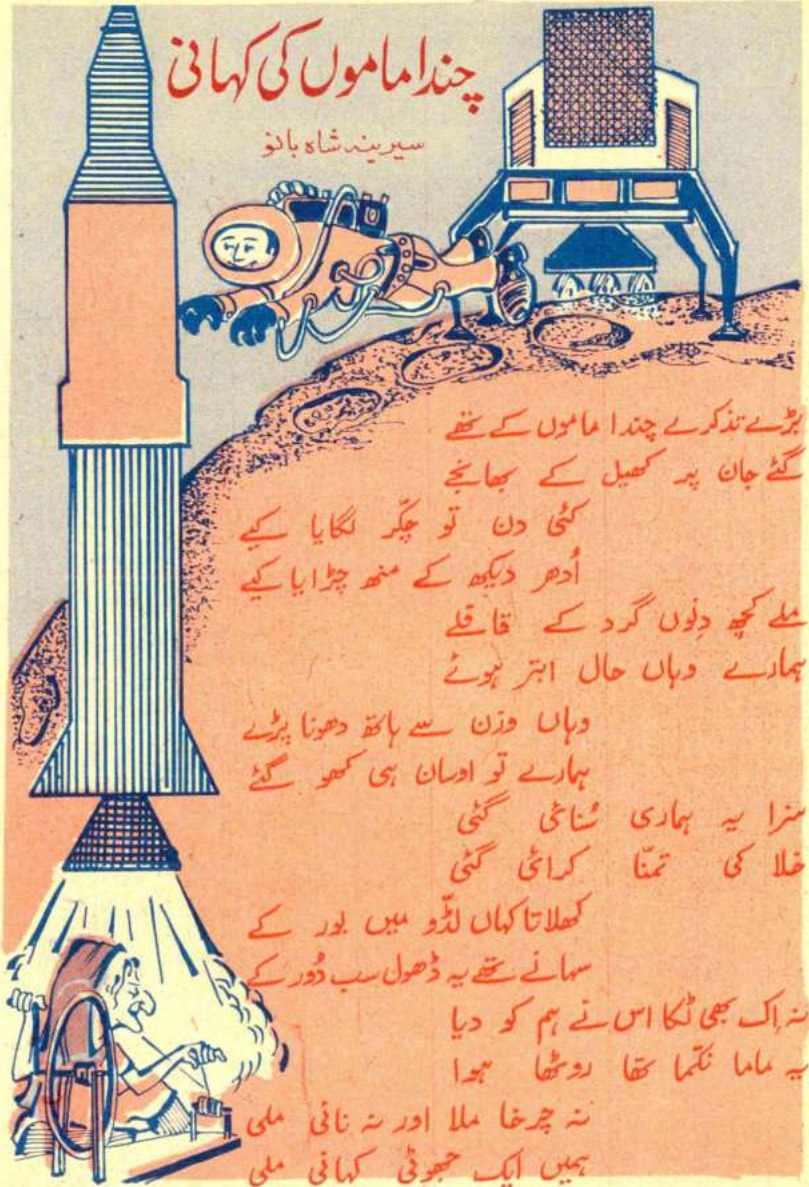 چندا ماموں کی کہانی
سیرینہ شاہ بانو
بڑے تذکرے چندا ماموں کے تھے
گئے جان پر کھیل کے بھانجے
کئی دن تو چکّر لگایا کیے
اُدھر دیکھ کے منھ چڑایا کیے
ملے کچھ دِنوں گرد کے قافلے
ہمارے وہاں حال ابتر ہوئے
وہاں وزن سے ہاتھ دھونا پڑے
ہمارے تو اوسان ہی کھو گئے
سزا یہ ہماری سُنائی گئی
خلا کی تمنّا کرائی گئی
کھلاتا کہاں لڈّو میں بور کے
سہانے تھے یہ ڈھول سب دُور کے
نہ اِک بھی ٹکا اس نے ہم کو دیا
یہ ماما نکّما تھا روٹھا ہوا
نہ چرخا ملا اور نہ نانی ملی
ہمیں ایک جھوٹی کہانی ملی